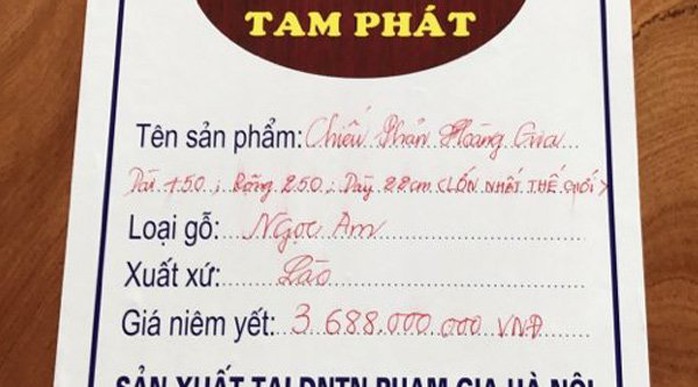 TAM PHÁT
Tên sản phẩm: Chiếu Phản Hoàng Gia
Dài 750; Rộng 250; Dày 22cm <LỚN NHẤT THẾ GIỚI>
Loại gỗ: Ngọc Am
Xuất xứ: Lào
Giá niêm yết: 3.688.000.000 VNĐ
SẢN XUẤT TẠI DNTN PHẠM GIA HÀ NỘI